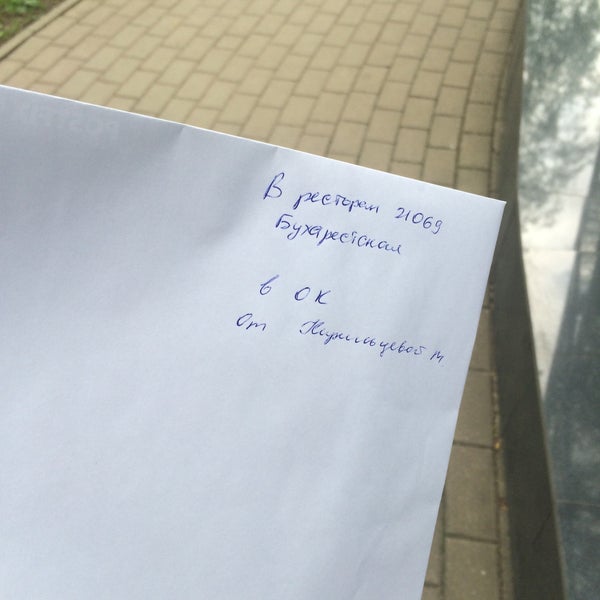 В ресторан 21069
Бухарестская
в ОК
От М